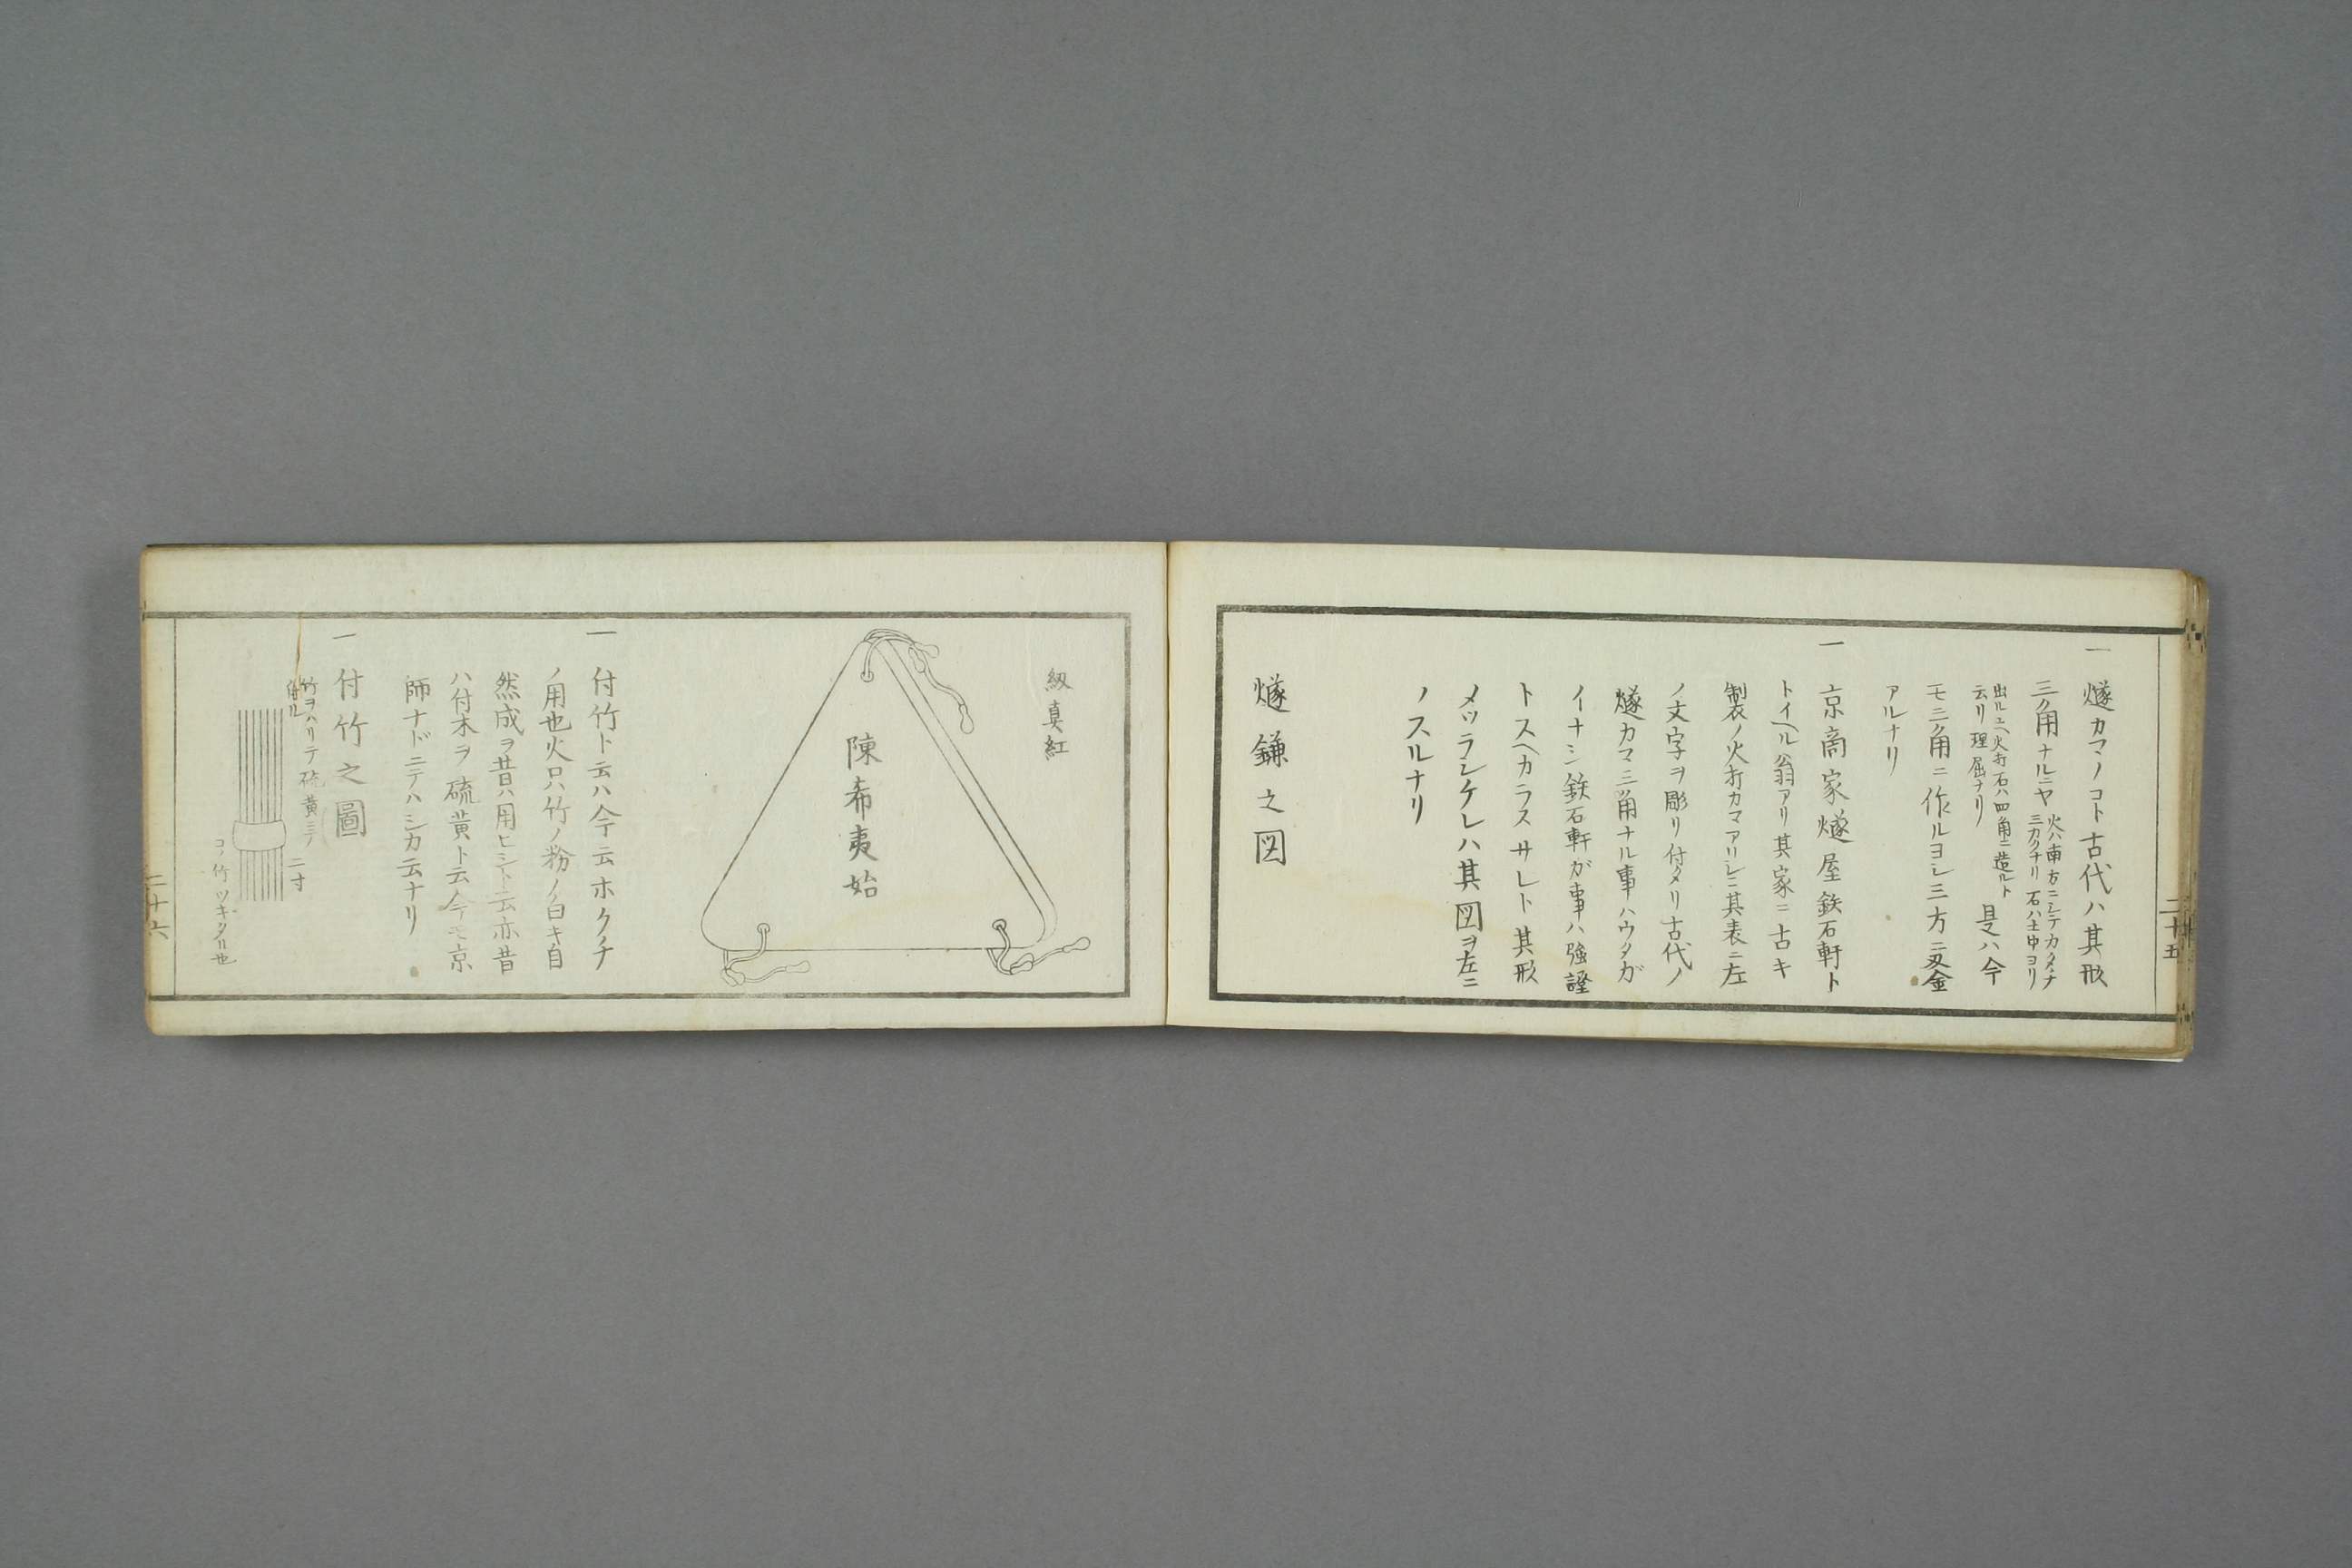 一 燧カマノコト古代ハ其形
三角ナルニヤ
火ハ南方ニシテカタチ
三カクナリ石ハ土中ヨリ
出ルユヘ火打石ハ四角ニ造ルト
云リ理屈ナリ
是ハ今
モ三角ニ作ルヨシ三方ニ刄金
アルナリ
一 京商家燧屋鉄石軒ト
トイヘル翁アリ其家ニ古キ
製ノ火打カマアリシニ其表ニ左
ノ文字ヲ彫リ付タリ古代ノ
燧カマ三角ナル事ハウタガ
イナシ鉄石軒ガ事ハ強證
トスヘカラスサレト其形
メツラシケレハ其図ヲ左ニ
ノスルナリ
燧鎌之図
二十五
紐真紅
陳希夷始
一 付竹ト云ハ今云ホクチ
ノ用也火口ハ竹ノ粉ノ白キ自
然成ヲ昔ハ用ヒシト云亦昔
ハ付木ヲ硫黄ト云今モ京
師ナドニテハシカ云ナリ
一 付竹之圖
竹ヲハリテ硫黄ニテ
付ル
二寸
コノ竹ツキタル也
二十六